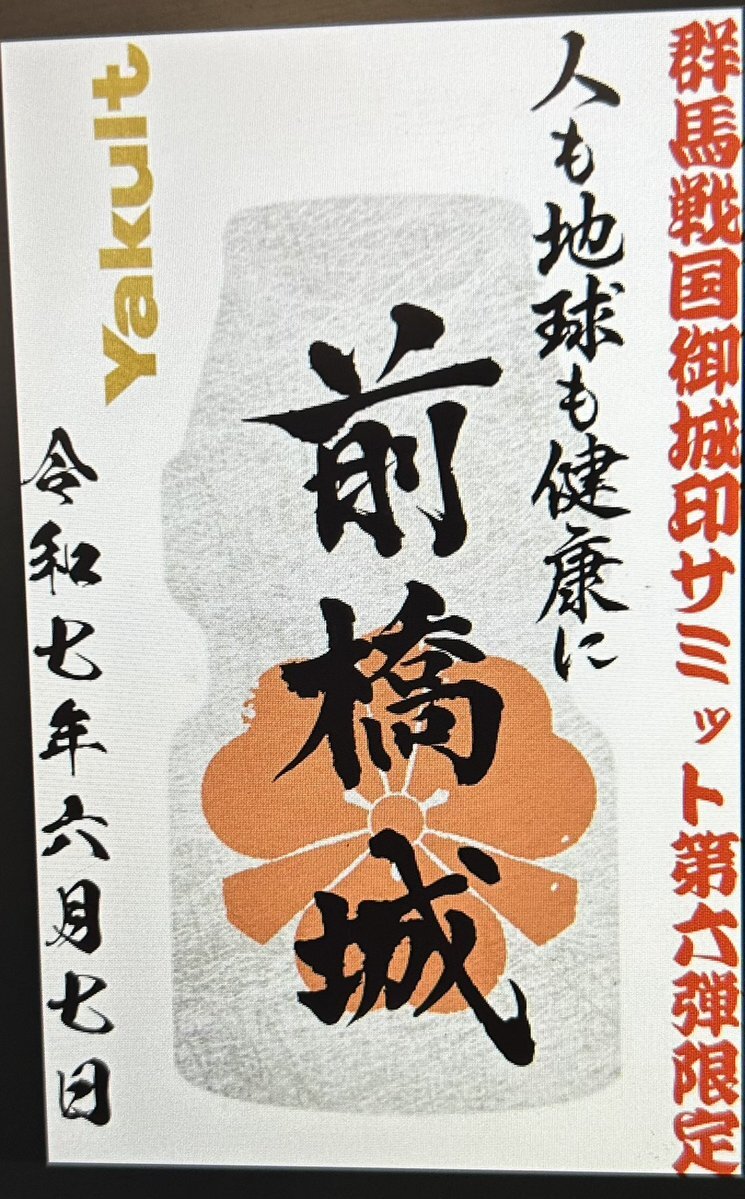 群馬戦国御城印サミット第六弾限定
人も地球も健康に
前橋城
Yakult
令和七年六月七日